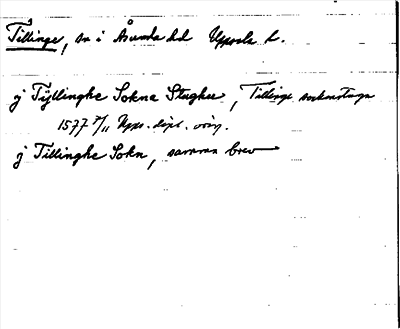 Tillinge, sn i Åsunda hd Uppsala l.
j Tyllinghe Sokne Stughu, Tillinge sockenstuga
1577 7/11 Upps. dipl. vörg.
j Tillinghe Sokn, samma brev